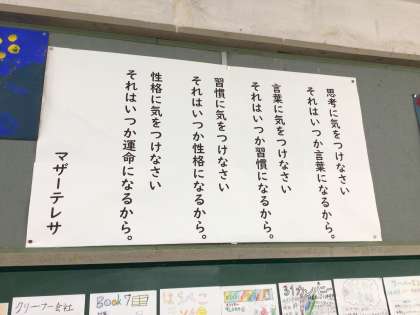 思考に気をつけなさい
それはいつか言葉になるから。
言葉に気をつけなさい
それはいつか習慣になるから。
習慣に気をつけなさい
それはいつか性格になるから。
性格に気をつけなさい
それはいつか運命になるから。
マザーテレサ
クリーナー会社
Book
はらぺこ